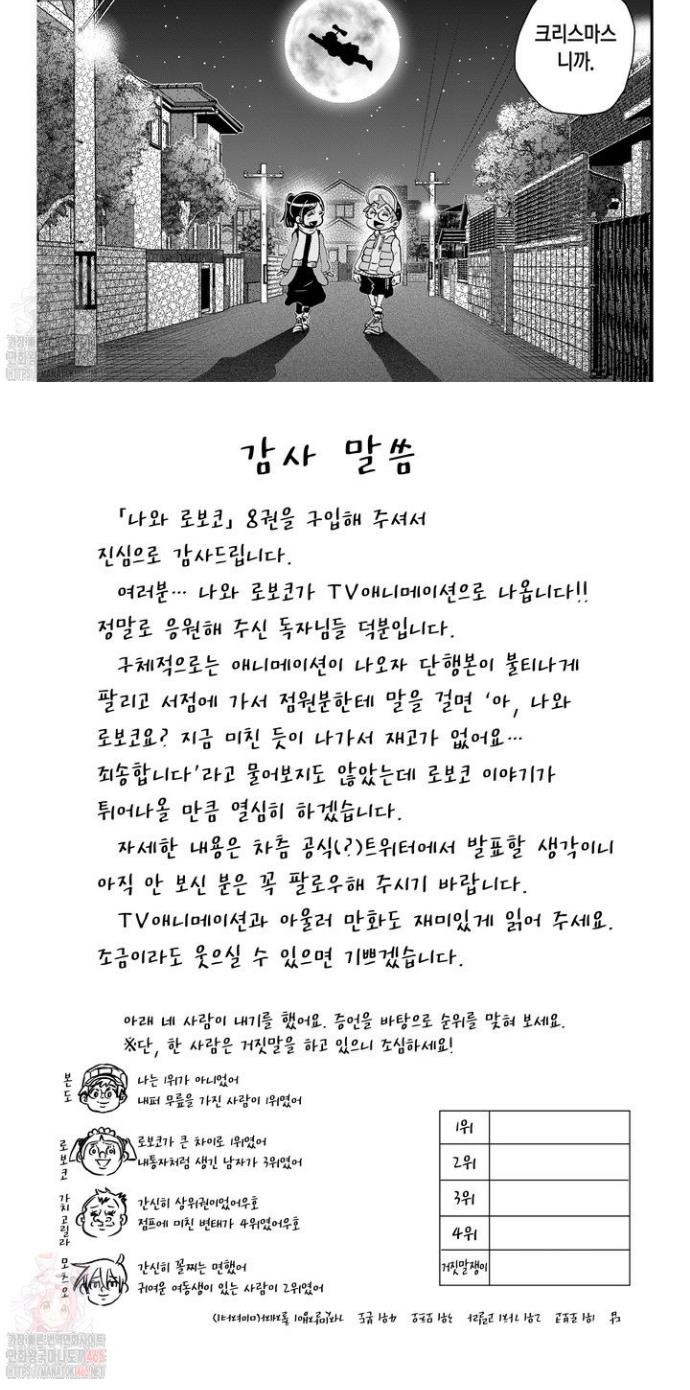 크리스마스
니까.
감사 말씀
「나와 로보코」 8권을 구입해 주셔서
진심으로 감사드립니다.
여러분… 나와 로보코가 TV애니메이션으로 나옵니다!!
정말로 응원해 주신 독자님들 덕분입니다.
구체적으로는 애니메이션이 나오자 단행본이 불티나게
팔리고 서점에 가서 점원분한테 말을 걸면 '아, 나와
로보코요? 지금 미친 듯이 나가서 재고가 없어요…
죄송합니다'라고 물어보지도 않았는데 로보코 이야기가
튀어나올 만큼 열심히 하겠습니다.
자세한 내용은 차츰 공식(?)트위터에서 발표할 생각이니
아직 안 보신 분은 꼭 팔로우해 주시기 바랍니다.
TV애니메이션과 아울러 만화도 재미있게 읽어 주세요.
조금이라도 웃으실 수 있으면 기쁘겠습니다.
아래 네 사람이 내기를 했어요. 증언을 바탕으로 순위를 맞혀 보세요.
※단, 한 사람은 거짓말을 하고 있으니 조심하세요!
본도
나는 1위가 아니었어
내퍼 무릎을 가진 사람이 1위였어
로보코
로보코가 큰 차이로 1위였어
내통자처럼 생긴 남자가 3위였어
가치고릴라
간신히 상위권이었어우호
점프에 미친 변태가 4위였어우호
모츠오
간신히 꼴찌는 면했어
귀여운 여동생이 있는 사람이 2위였어
1위
2위
3위
4위
거짓말쟁이
만화왕국마나토끼465
HTTPS://MANATOKI465.NET